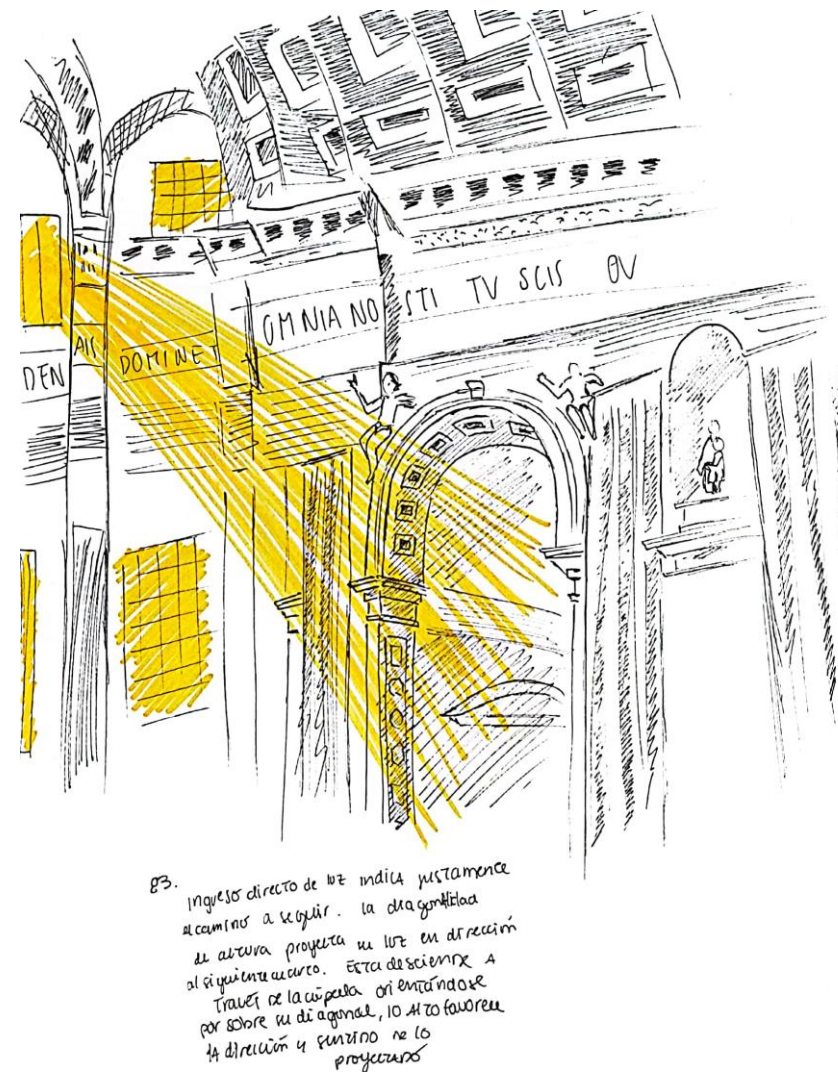 OMNIA NOSTI TV SCIS QV
DEN AIS DOMINE T
83.
Ingreso directo de luz indica justamente
el camino a seguir. la diagonalidad
de altura proyecta su luz en dirección
al siguiente cuarto. Esta desciende a
través de la cúpula orientándose
por sobre su diagonal, lo alto favorece
la dirección y sentido de lo
proyectado